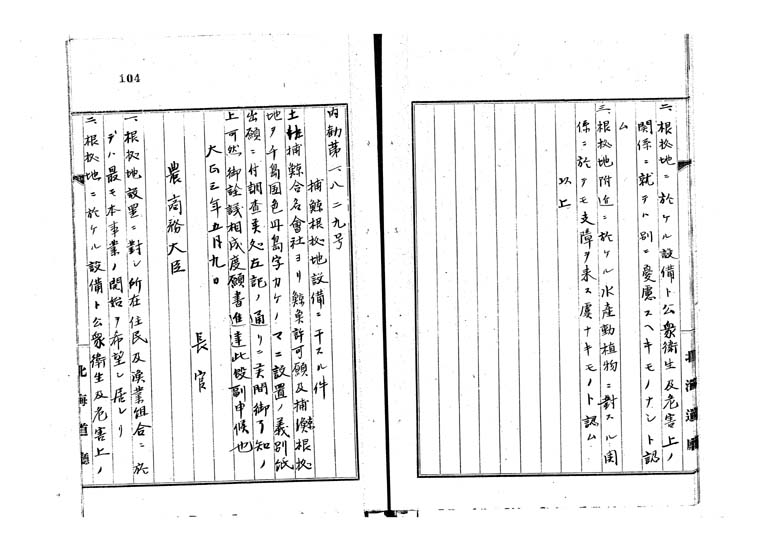 二、根拠地ニ於ケル設備ト公衆衛生及危害上ノ
関係ニ就テハ別ニ憂慮スヘキモノナシト認
ム
三、根拠地附近ニ於ケル水産動植物ニ對スル関
係ニ於テモ支障ヲ来ス虞ナキモノト認ム
以上
北海道廳
104
内勧第一八二九号
捕鯨根拠地設備ニ干スル件
土佐捕鯨合名會社ヨリ鯨漁許可願及捕鯨根拠
地ヲ千島国色丹島字カケノマニ設置ノ義別紙
出願ニ付調査候処左記ノ通リニ候間御了知ノ
上可然御詮議相成度願書進達此段副申候也
大正三年五月九日
長官
農商務大臣
一、根拠地設置ニ對シ所在住民及漁業組合ニ於
テハ最モ本事業ノ開始ヲ希望シ居レリ
二、根拠地ニ於ケル設備ト公衆衛生及危害上ノ
北海道廳